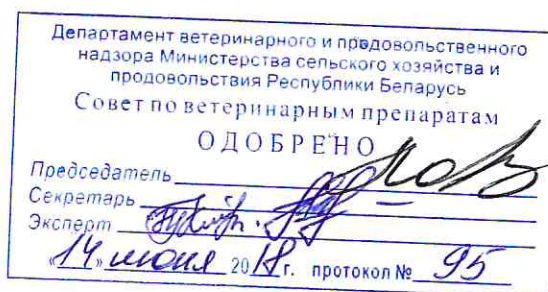 Департамент ветеринарного и продовольственного
надзора Министерства сельского хозяйства и
продовольствия Республики Беларусь
Совет по ветеринарным препаратам
ОДОБРЕНО
Председатель
Секретарь
Эксперт
«14» июня 2018 г. протокол № 95